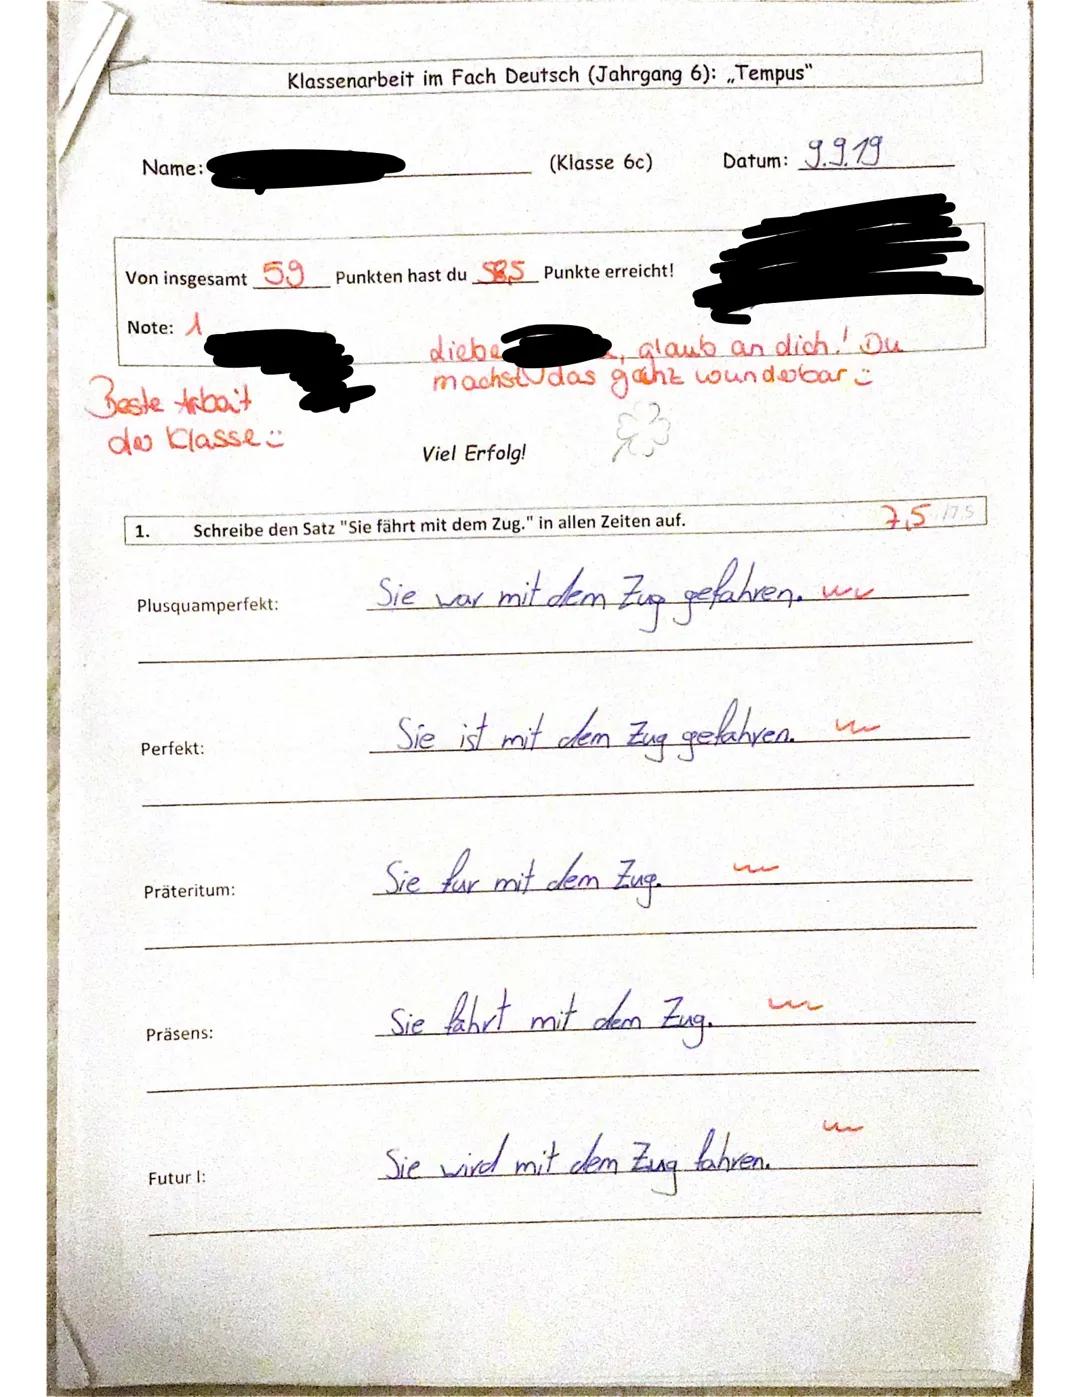 Klassenarbeit im Fach Deutsch (Jahrgang 6): „Tempus"
Name: (Klasse 6c) Datum: 9.9.19
Von insgesamt 59 Punkten hast du 58,5 Punkte erreicht!
Note: 1
liebe , glaub an dich! Du
machst das ganz wunderbar :)
Beste Arbeit
der Klasse :)
Viel Erfolg!
1. Schreibe den Satz "Sie fährt mit dem Zug." in allen Zeiten auf. 7,5 /7,5
Plusquamperfekt: Sie war mit dem Zug gefahren.
Perfekt: Sie ist mit dem Zug gefahren.
Präteritum: Sie fur mit dem Zug.
Präsens: Sie fährt mit dem Zug.
Futur I: Sie wird mit dem Zug fahren.